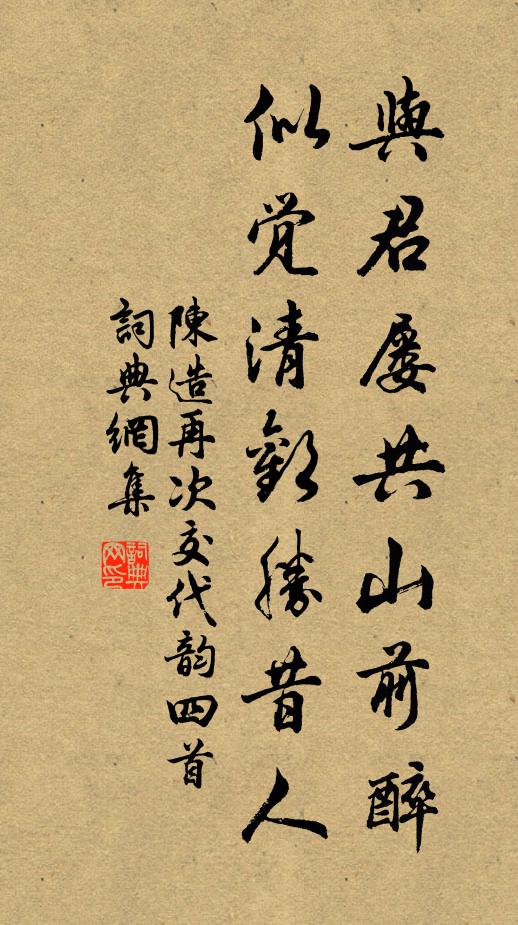 與君屢共山前醉
似覚清歡勝昔人
陳造再次交代韵四首
詞典網集
詞典网印